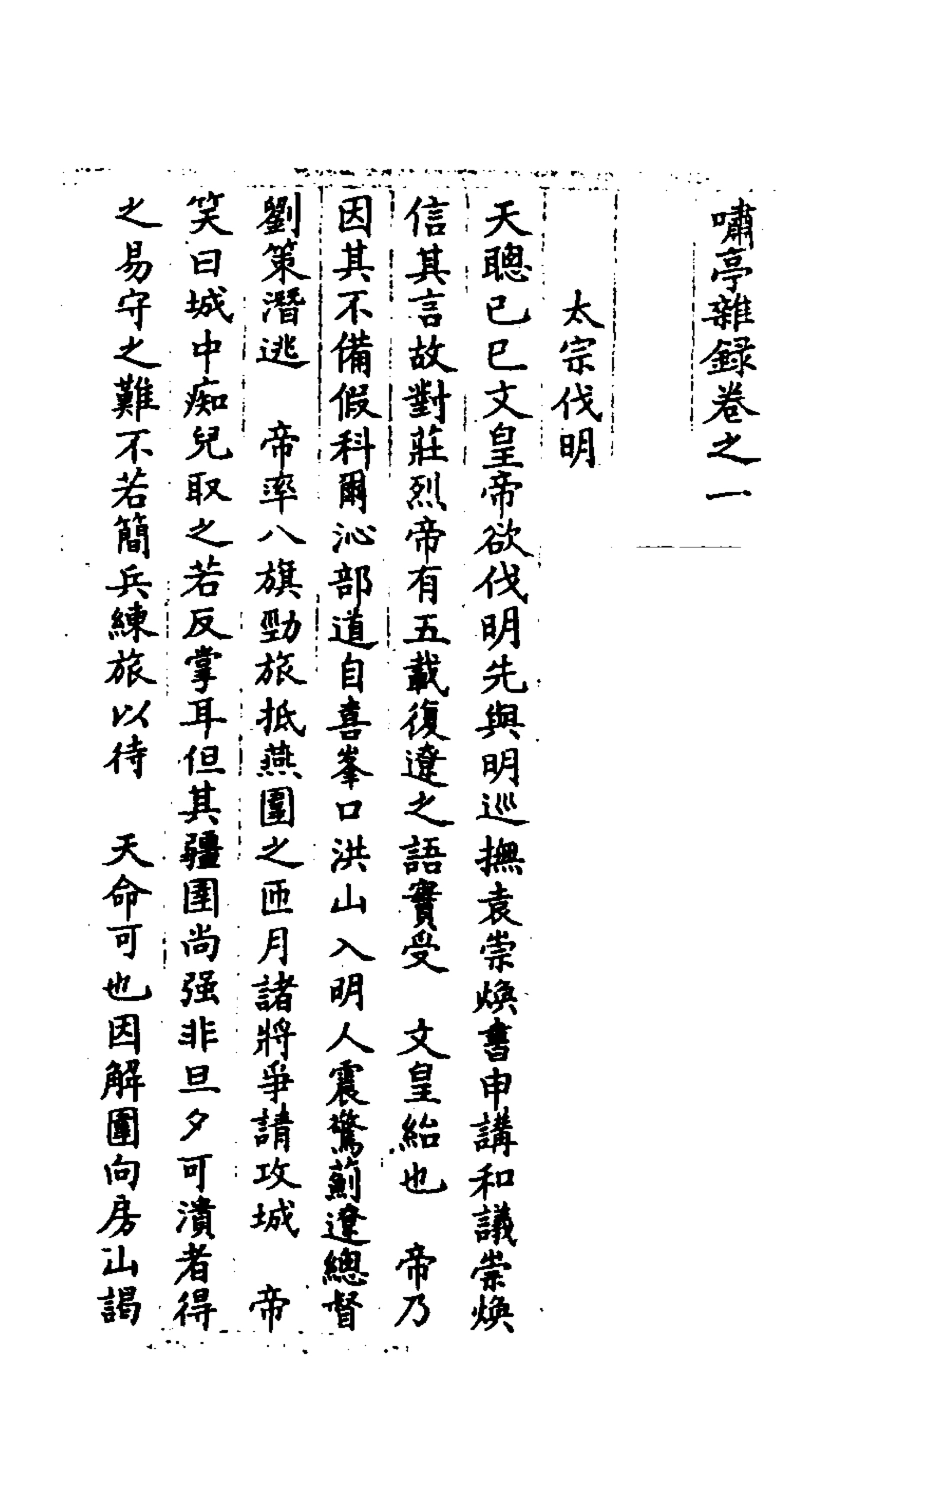 嘯亭雜録卷之一
太宗伐明
天聰己巳文皇帝欲伐明先與明巡撫袁崇煥書申講和議崇煥
信其言故對莊烈帝有五載復遼之語實受 文皇紿也 帝乃
因其不備假科爾沁部道自喜峯口洪山入明人震驚薊遼總督
劉策潛逃 帝率八旗勁旅抵燕圍之匝月諸將爭請攻城 帝
笑曰城中痴兒取之若反掌耳但其疆圉尚强非旦夕可潰者得
之易守之難不若簡兵練旅以待 天命可也因解圍向房山謁